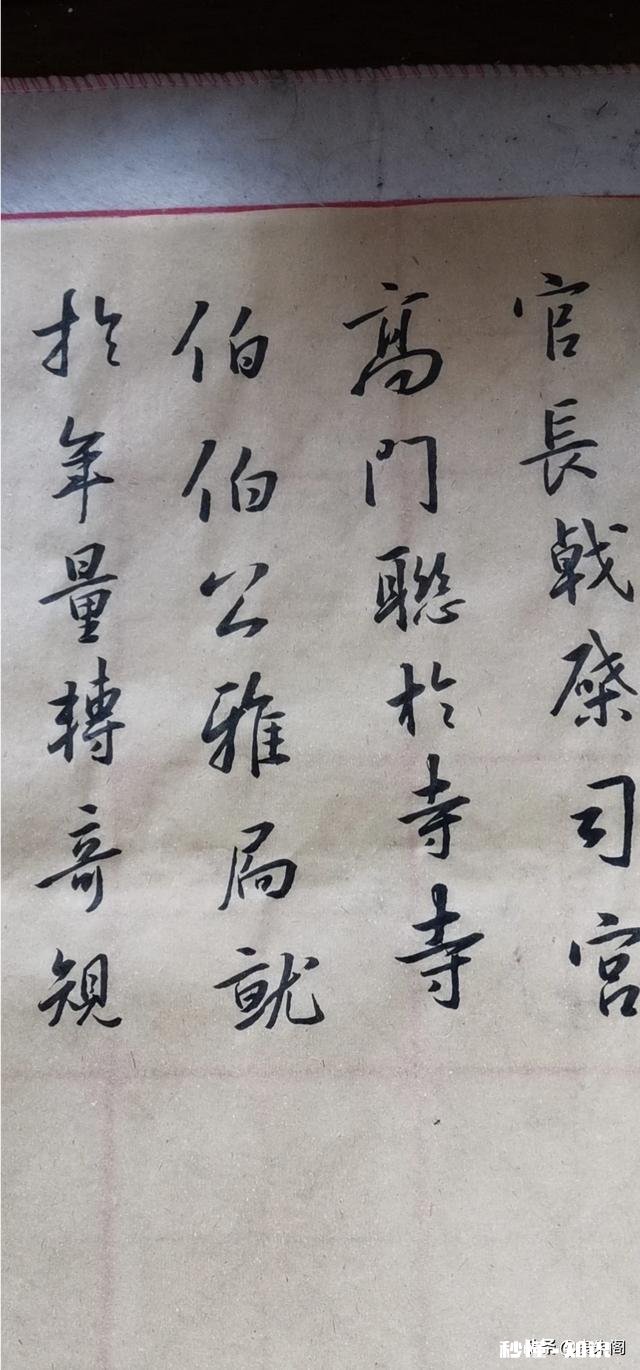 官長戟棨司宮
高門聰於寺寺
伯伯公雅局就
於年量轉奇規